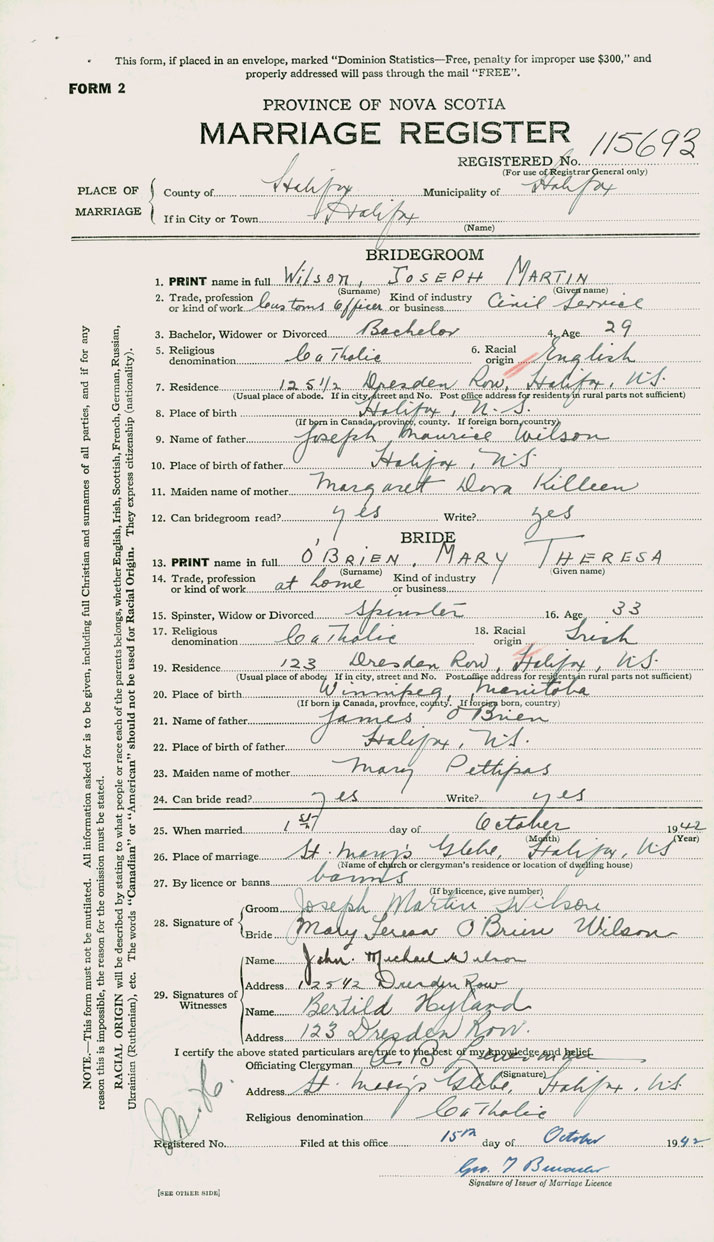 This form, if placed in an envelope, marked "Dominion Statistics—Free, penalty for improper use $300," and
properly addressed will pass through the mail "FREE".
FORM 2
PROVINCE OF NOVA SCOTIA
MARRIAGE REGISTER
REGISTERED No. 115693
(For use of Registrar General only)
PLACE OF MARRIAGE
County of Halifax Municipality of Halifax
If in City or Town Halifax
(Name)
BRIDEGROOM
1. PRINT name in full Wilson, JOSEPH MARTIN
(Surname) (Given name)
2. Trade, profession or kind of work Customs Officer Kind of industry or business Civil Service
3. Bachelor, Widower or Divorced Bachelor 4. Age 29
5. Religious denomination Catholic 6. Racial origin English
7. Residence 125½ Dresden Row, Halifax, N.S.
(Usual place of abode. If in city, street and No. Post office address for residents in rural parts not sufficient)
8. Place of birth Halifax, N.S.
(If born in Canada, province, county. If foreign born, country)
9. Name of father Joseph Maurice Wilson
10. Place of birth of father Halifax, N.S.
11. Maiden name of mother Margaret Dora Killeen
12. Can bridegroom read? yes Write? yes
BRIDE
13. PRINT name in full O'BRIEN, MARY THERESA
(Surname) (Given name)
14. Trade, profession or kind of work at home Kind of industry or business
15. Spinster, Widow or Divorced Spinster 16. Age 33
17. Religious denomination Catholic 18. Racial origin Irish
19. Residence 123 Dresden Row, Halifax, N.S.
(Usual place of abode. If in city, street and No. Post office address for residents in rural parts not sufficient)
20. Place of birth Winnipeg, Manitoba
(If born in Canada, province, county. If foreign born, country)
21. Name of father James O'Brien
22. Place of birth of father Halifax, N.S.
23. Maiden name of mother Mary Pettipas
24. Can bride read? yes Write? yes
25. When married 1st day of October 1942
(Month) (Year)
26. Place of marriage St. Mary's Glebe, Halifax, N.S
(Name of church or clergyman's residence or location of dwelling house)
27. By licence or banns banns
(If by licence, give number)
28. Signature of
Groom Joseph Martin Wilson
Bride Mary Teresa O'Brien Wilson
29. Signatures of Witnesses
Name John Michael Wilson
Address 125½ Dresden Row
Name Bertild Hyland
Address 123 Dresden Row.
I certify the above stated particulars are true to the best of my knowledge and belief.
Officiating Clergyman
(Signature)
Address St. Mary's Glebe, Halifax, N.S
Religious denomination Catholic
Registered No. Filed at this office 15th day of October 1942
Geo. T
Signature of Issuer of Marriage Licence
[SEE OTHER SIDE]
NOTE.—This form must not be mutilated. All information asked for is to be given, including full Christian and surnames of all parties, and if for any
reason this is impossible, the reason for the omission must be stated.
RACIAL ORIGIN will be described by stating to what people or race each of the parents belongs, whether English, Irish, Scottish, French, German, Russian,
Ukrainian (Ruthenian), etc. The words "Canadian" or "American" should not be used for Racial Origin. They express citizenship (nationality).